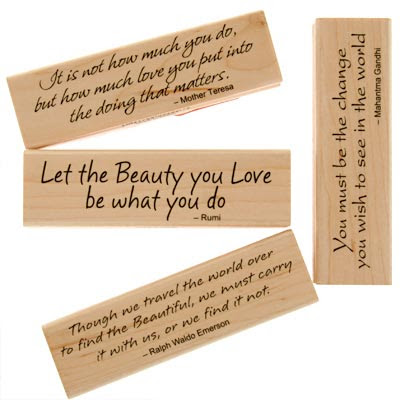 It is not how much you do,
but how much love you put into
the doing that matters.
– Mother Teresa
Let the Beauty you Love
be what you do
– Rumi
Though we travel the world over
to find the Beautiful, we must carry
it with us, or we find it not.
–Ralph Waldo Emerson
You must be the change
you wish to see in the world
– Mahantma Gandhi